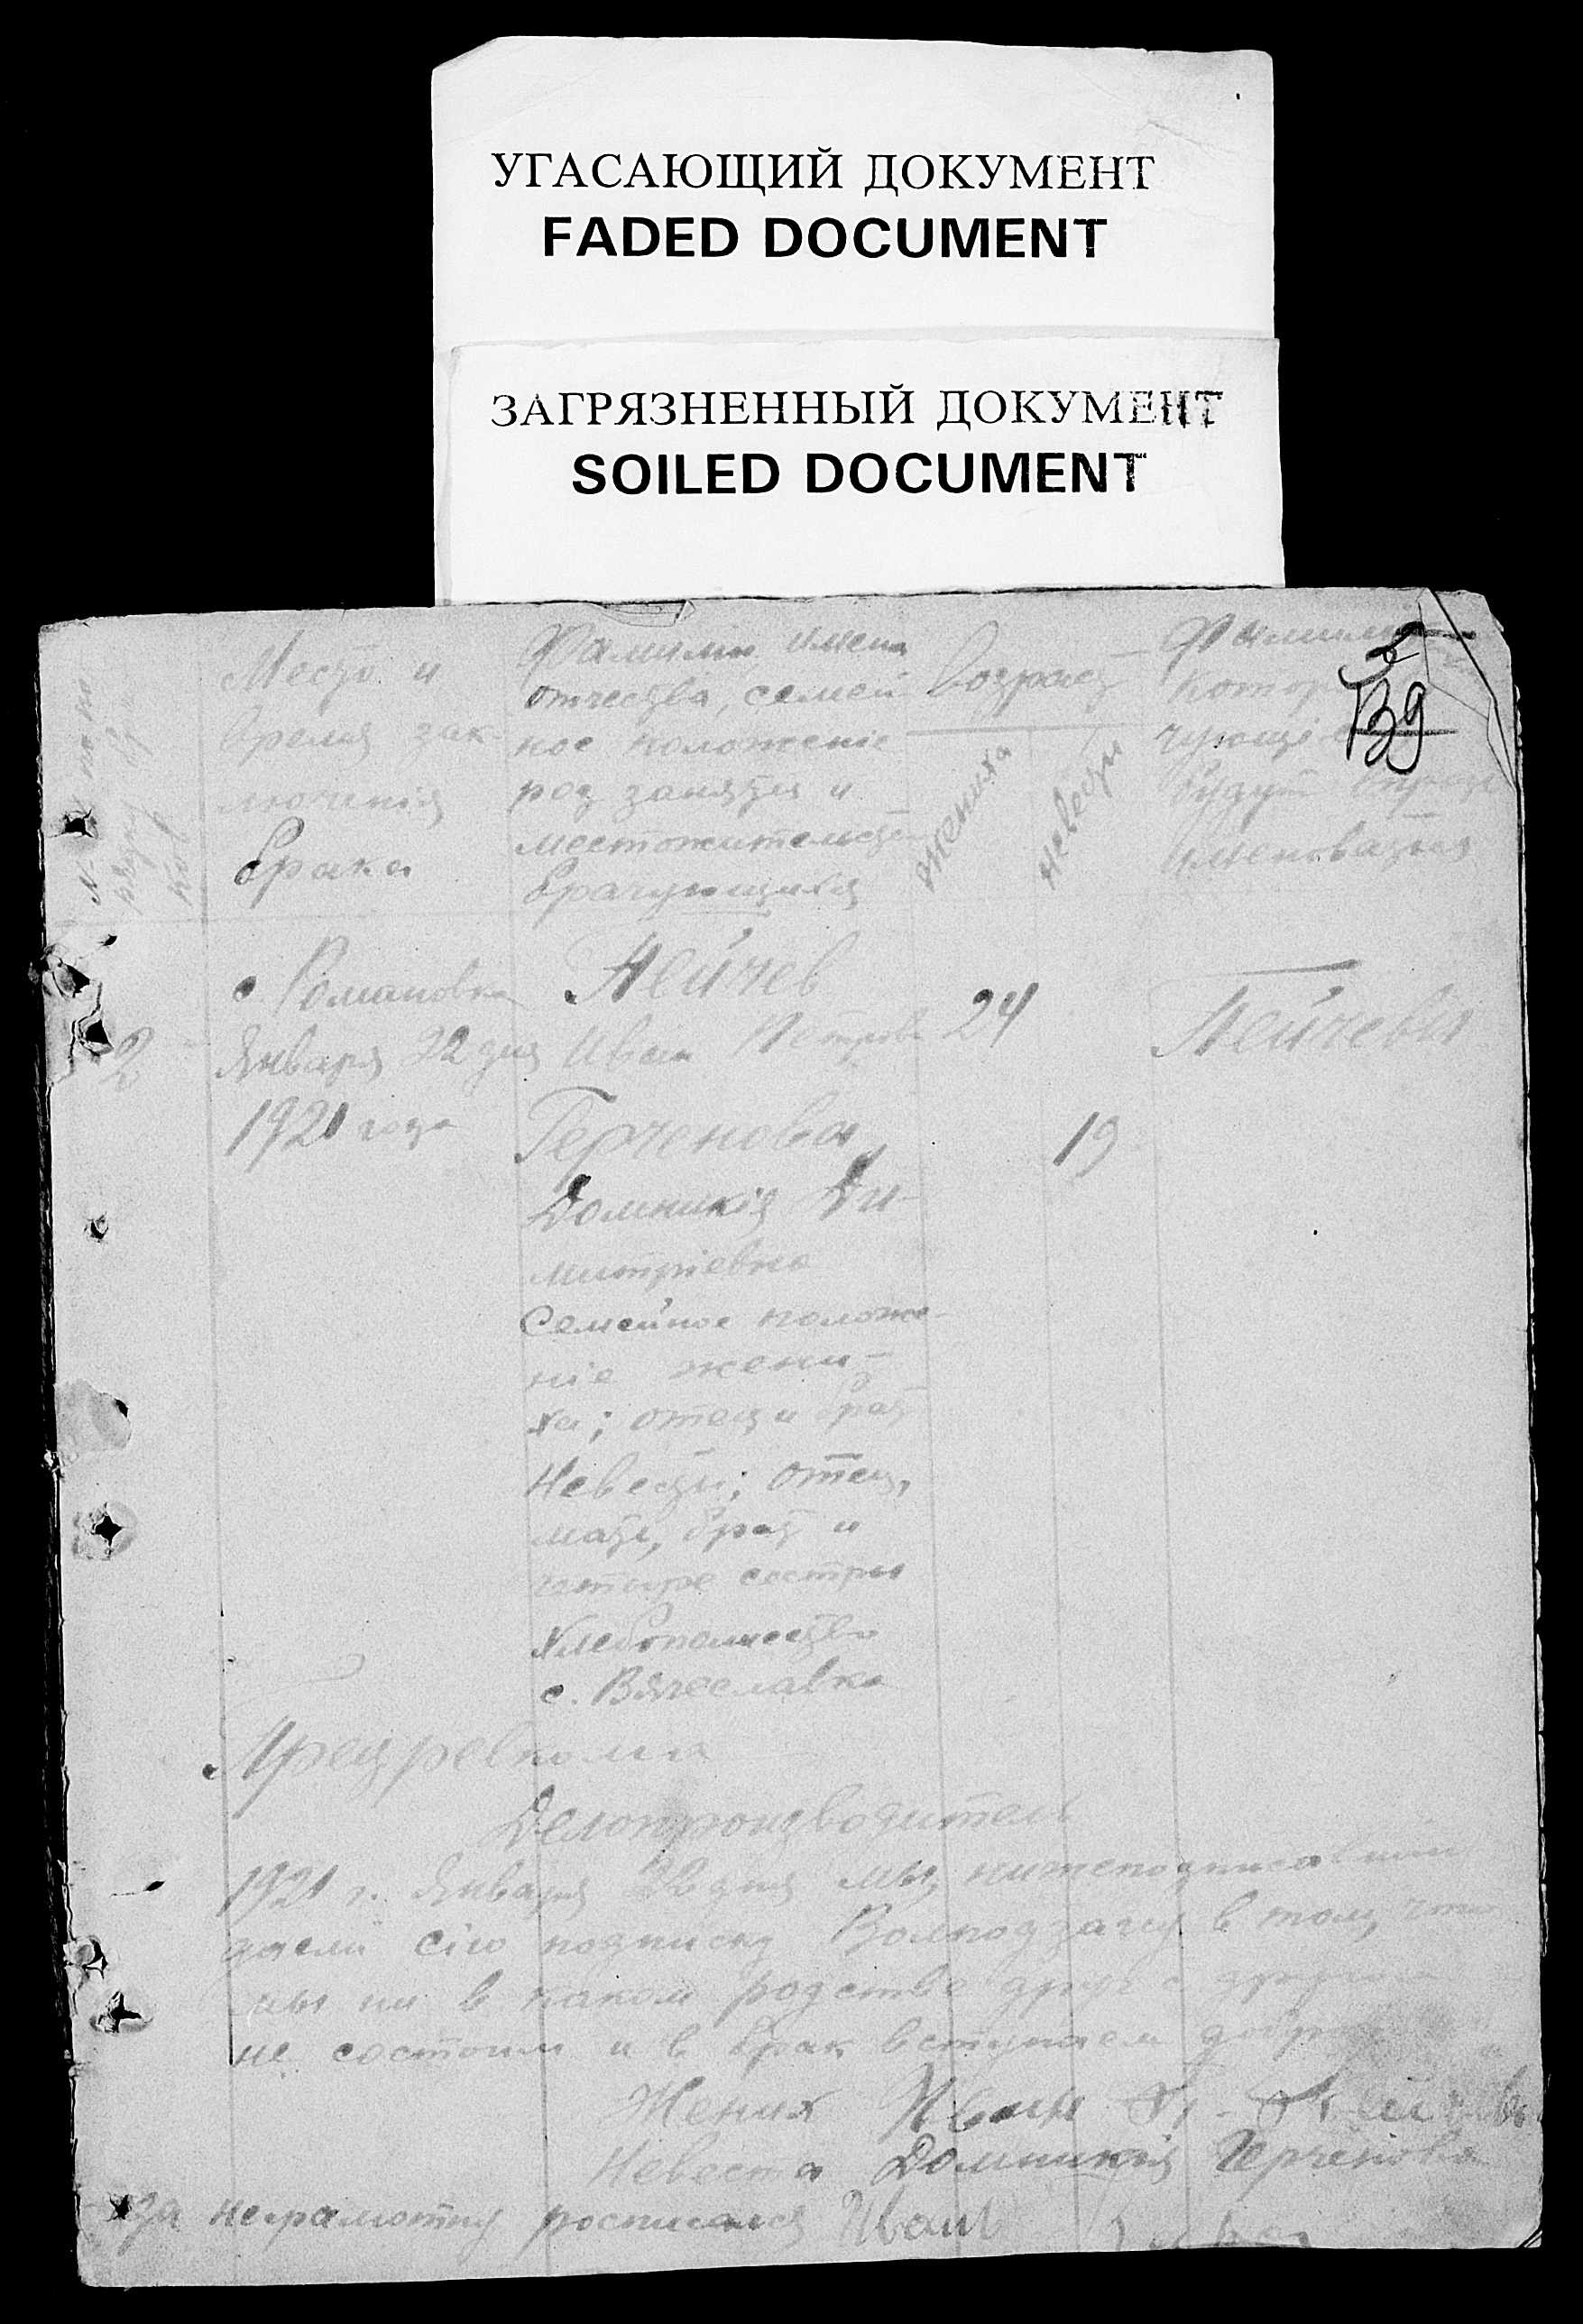 УГАСАЮЩИЙ ДОКУМЕНТ
FADED DOCUMENT
ЗАГРЯЗНЕННЫЙ ДОКУМЕНТ
SOILED DOCUMENT
139
Место и
время зак-
люченія
брака
Фамилии имена
отчества, семей
ное положеніе
род занятія и
местожительство
брачующихся
возраст
жениха
невесты
Фамилия
котор
чующіеся
будут впредь
именоваться
2
с. Романовка
Января 22 дня
1921 года
Пейчев
Иван Петров
24
Пейчевы
Герченова
19
Домникія Ди-
митріевна
Семейное положе-
ніе жени-
ха; отец и брат
Невесты; отец,
мать, брат и
сестры
Хлебопашество
с. Вячеславка
Предревкома
Делопроизводитель
1921 г. Января дня мы, нижеподписавшіи
дали сію подписку в том, что
мы ни в каком родстве друг с другом
не состоим и в брак вступаем
Жених Иван П. Пейчев
Невеста Домникія Герченова
За неграмотную росписался Иван